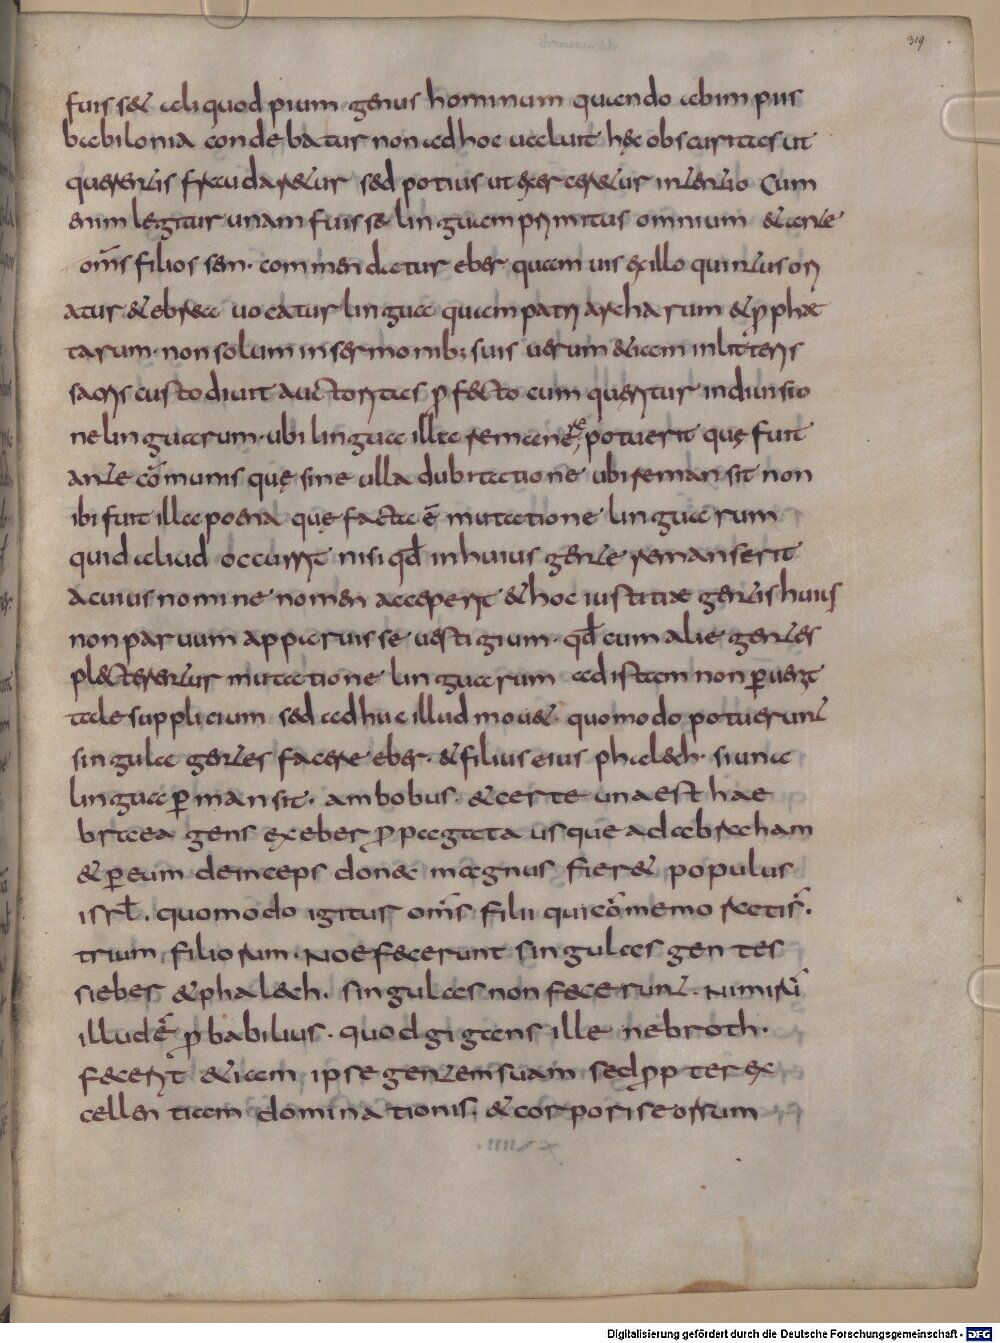 319
fuisset aliquod pium genus hominum quando abimpiis
babilonia condebatur non adhoc ualuit hęc obscuritas ut
querentis fraudaretur sed potius ut exerceretur intentio Cum
enim legitur unam fuisse linguam primitus omnium & ante
om̄s filios sem· commendatur eber· quam uis exillo quintus ori
atur & ebrea uocatur lingua quam patriarcharum & ꝓphe
tarum· non solum insermonib; suis uerum & iam inlitteris
sacris custodiuit auctoritas ꝓfecto cum quęritur indiuisio
ne linguarum· ubi lingua illa remanere potuerit quę fuit
ante cōmunis quę sine ulla dubitatione ubi remansit non
ibi fuit illa poena quę facta ē mutatione linguarum
quid aliud occurrit nisi qđ inhuius gente remanserit
acuius nomine nomen acceperit & hoc iustitiae gentis huius
non paruum apparuisse uestigium· qđ cum alie gentes
plecterentur mutatione linguarum adistam non ꝑuenit
tale supplicium sed adhuc illud mouet· quomodo potuerunt
singulas gentes facere eber· & filius eius phalech· si una
lingua ꝑmansit· ambobus· & certe una est hae
braea gens exeber ꝓpagata usque ad abraham
& ꝑeum deinceps donec magnus fieret populus
isrł. quomodo igitur om̄s filii qui cōmemorati s̄·
trium filiorum· Noe fecerunt singulas gentes
si eber & phalech. singulas non fecerunt. Nimirū
illud ē ꝓbabilius· quod gigans ille nebroth·
fecerit & iam ipse gentem suam sed ꝓpter ex
cellentiam dominationis, & corporis eorsum
.xiiii.
Digitalisierung gefördert durch die Deutsche Forschungsgemeinschaft - DFG